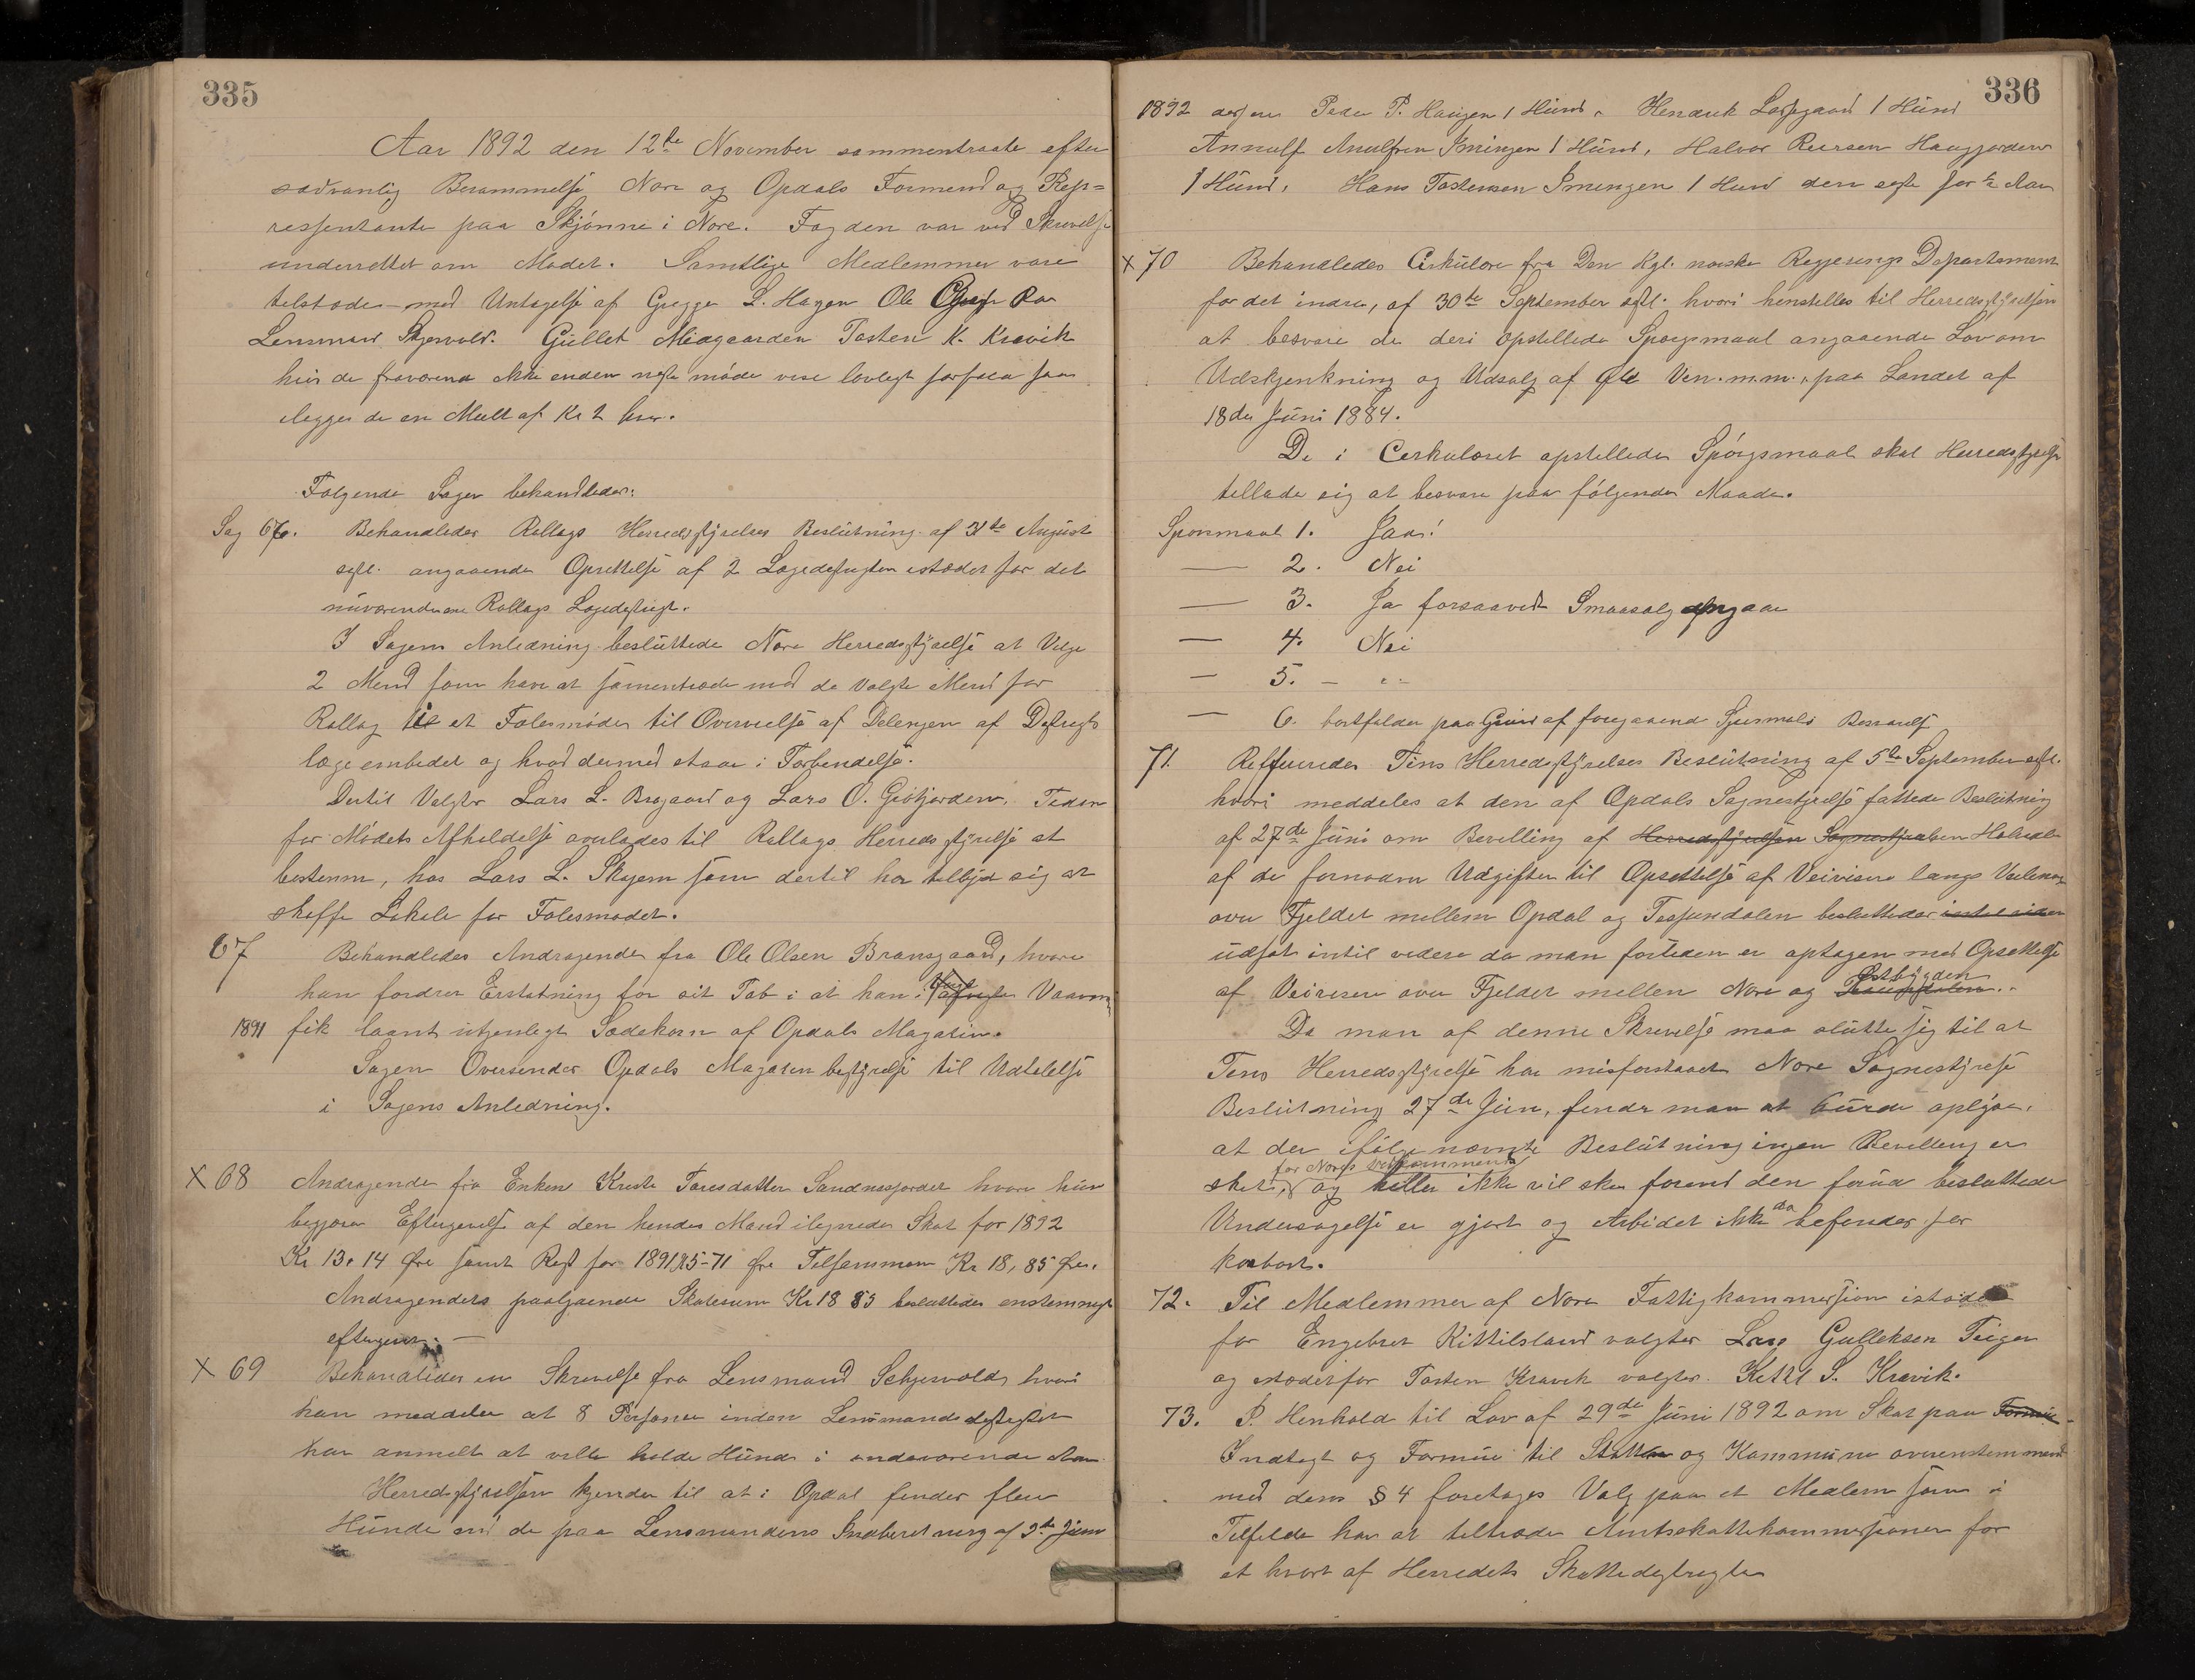 335
Aar 1892 den 12te November sammentraate efter
sædvanlig Berammelse Nore og Opdals Formend og Rep=
resentanter paa Skjønne i Nore. Fogden var ved Skrivelse
underrettet om Mødet. Samtlige Medlemmer vare
tilstæde med Untagelse af Gregge L. Hagen Ole
Lensmand Skjervold. Gullek Midgaarden Tosten K. Kravik
hvis de fraværend ikke enden neste møde vise lovlegt forfald saa
elegges de en Mult af Kr 2 hver.
Følgende Sager behandledes:
Sag 66. Behandledes Rollags Herredsstyrelses Beslutning af 31te August
sestl. angaaende Oprettelse af 2 Lægedestrigter istædet for det
nuværende ene Rollags Lægedestrigt.
I Sagens Anledning besluttede Nore Herredsstyrelse at Velge
2 Mend som have at samentræde med de valgte Mend for
Rollag til et Felesmøde til Overveielse af Delengen af Destrigts
lægeembedet og hvad dermed staar i Forbendelse.
Dertil Valgtes Lars L. Bragaard og Lars O. Grøtjorden. Teden
for Mødets Afholdelse overlades til Rollags Herredsstyrelse at
bestemm, hos Lars L. Skjem som dertil har telbyd sig at
skaffe Lokale for Felesmødet.
67 Behandledes Andragende fra Ole Olsen Bransgaard, hvori
han fordrer Erstatning for sit Tab i at han i Vaaren
1891 fik laant utjenlegt Sædekorn af Opdals Magasin.
Sagen Oversendes Opdals Magasen bestyrelse til Udtalelse
i Sagens Anledning.
X 68 Andragende fra Enken Kreste Toresdatter Sandnesjordet hvori hun
begjærer Eftergevelse af den hendes Mand ilegnede Skat for 1892
Kr 13. 14 Øre samt Rest for 1891 Kr 5-71 Øre Telsammen Kr 18, 85 Øre.
Andragendets paalydende Skatesum Kr 18 85 besluttedes enstemmegt
eftergevet. —
X 69 Behandledes en Skrevelse fra Lensmand Schjervold, hvori
han meddeler at 8 Personer inden Lensmandsdestrigtet
har anmelt at ville holde Hunde i indeværende Aar
Herredsstyrelsen kjender til at i Opdal fendes flere
Hunde end de paa Lensmandens Indberetning af 2de Juni
336
1892 Peder P. Haugen 1 Hund, Hendrik Lassegaard 1 Hund
Arnulf Arnulfsen Imingen 1 Hund, Halvor Reiersen Haugjorden
1 Hund, Hans Tostensen Imingen 1 Hund den
X 70 Behandledes Cirkulære fra Den Kgl. norske Regjerings Departement
for det indre, af 30te September sestl. hvori henstelles til Herredsstyrelsen
at besvare de deri opstellede Spørgsmaal angaaende Lov om
Udskjenkning og Udsalg af Øll Ven. m.m. paa Landet af
18de Juni 1884.
De i Cerkulæret opstellede Spórgsmaal skal Herredsstyrelse
tellade sig at besvare paa følgende Maade.
Sporsmaal 1. Jaa!
— 2. Nei
— 3. Ja forsaavedt Smaasalg angaar
— 4. Nei
— 5. — " —
— 6. bortfalder paa Grund af foregaaende Spørsmals Besvarelse
71. Reffereredes Tens Herredsstyrelses Beslutning af 5te September sestl.
hvori meddeles at den af Opdals Sognestyrelse fattede Beslutning
af 27de Juni om Bevilling af Herredsstyrelsen Halvdel
af de fornødne Udgifter til Opsettelse af Veivisere langs Veilengen
over Fjeldet mellem Opdal og Tessundalen besluttedes
udsat indtil vedere da man fortiden er optagen med Opsettelse
af Veivisere over Fjeldet mellem Nore og Østbygden
Da man af denne Skrevelse maa slutte sig til at
Tens Herredsstyrelse har misforstaaet Nore Sognestyrese
Beslutning 27de Juni, fender man at burde oplyse,
at der ifølge nævnte Beslutning ingen Bevilleng er
for Nores Vedkommende
sket, og heller ikke vil ske førend den forud besluttede
Undersøgelse er gjort og Arbidet ikke da befendes for
kosbart.
72. Til Medlemmer af Nore Fattigkommesjion istædet
for Engebret Kittilsland valgtes Lars Gulleksen Teigen
og istædetfor Tosten Kravik valgtes Kettil S. Kravik.
73. I Henhold til Lov af 29de Juni 1892 om Skat paa Formue
Indtegt og Formue til Statten og Kommune overenstemmend
med dens § 4 foretages Valg paa et Medlem som i
Telfelde har at teltræde Amtsskattekommesjonen for
et hvert af Herredets Skattedestregter